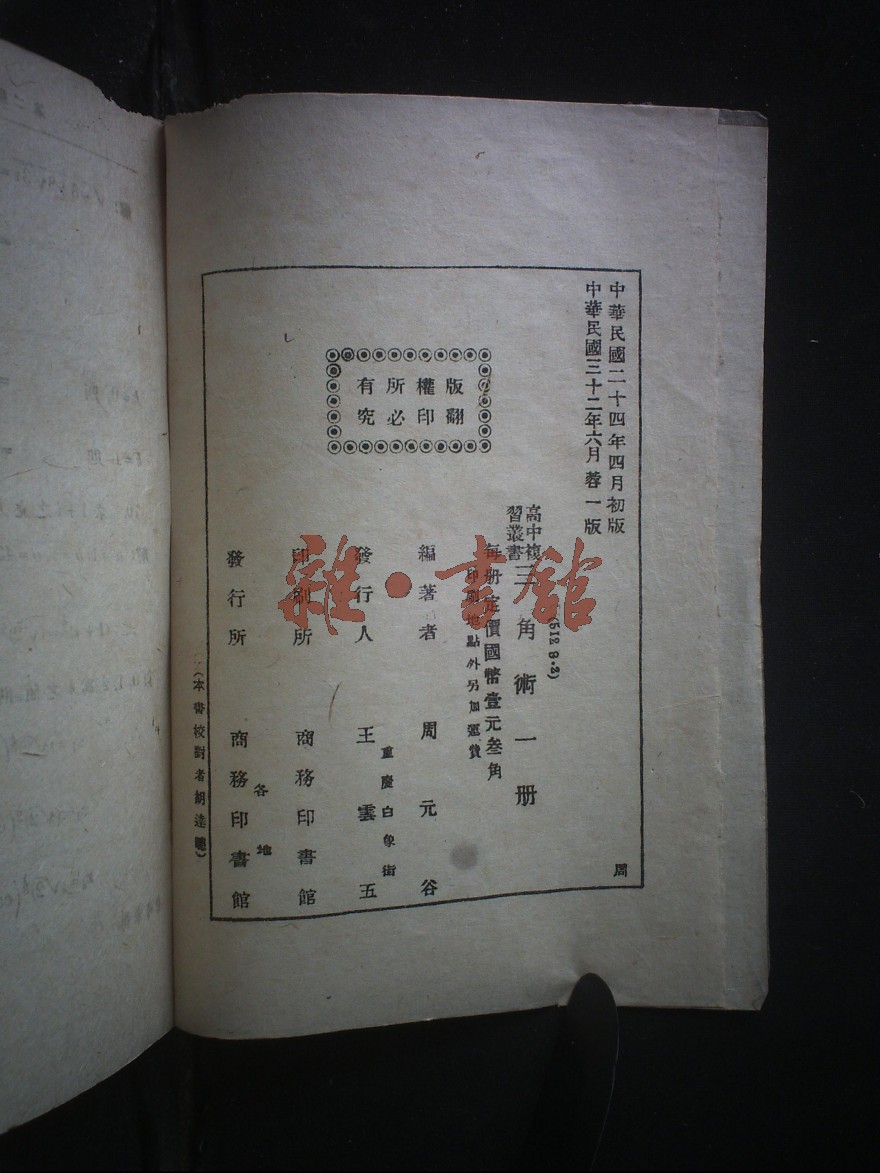 中華民國二十四年四月初版
中華民國三十二年六月蓉一版
高中複習叢書 三角術一册
(512 9·2)
每册定價國幣壹元叁角
印刷地點外另加運費
編著者 周元谷
發行人 王雲五
重慶白象街
印刷所 商務印書館
發行所 商務印書館
各地
(本書校對者胡達聰)
版權所有
翻印必究
周
雜·書館